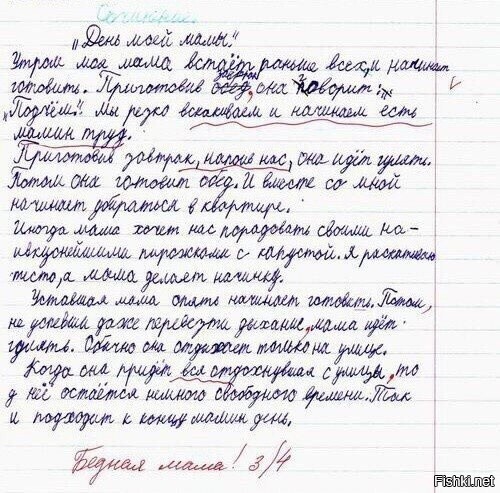 Сочинение.
„День моей мамы."
Утром моя мама встаёт раньше всех, и начинает
готовить. Приготовив обед, она говорит:
„Подъём". Мы резко вскакиваем и начинаем есть
мамин труд.
Приготовив завтрак, напоив нас, она идёт гулять.
Потом она готовит обед. И вместе со мной
начинает убираться в квартире.
Иногда мама хочет нас порадовать своими на-
ивкуснейшими пирожками с капустой. Я раскатываю
тесто, а мама делает начинку.
Уставшая мама опять начинает готовить. Потом,
не успевши даже перевезти дыхание, мама идёт
гулять. Обычно она отдыхает только на улице.
Когда она придёт вся отдохнувшая с улицы, то
у неё остаётся немного свободного времени. Так
и подходит к концу мамин день.
Бедная мама! 3/4
Fishki.net